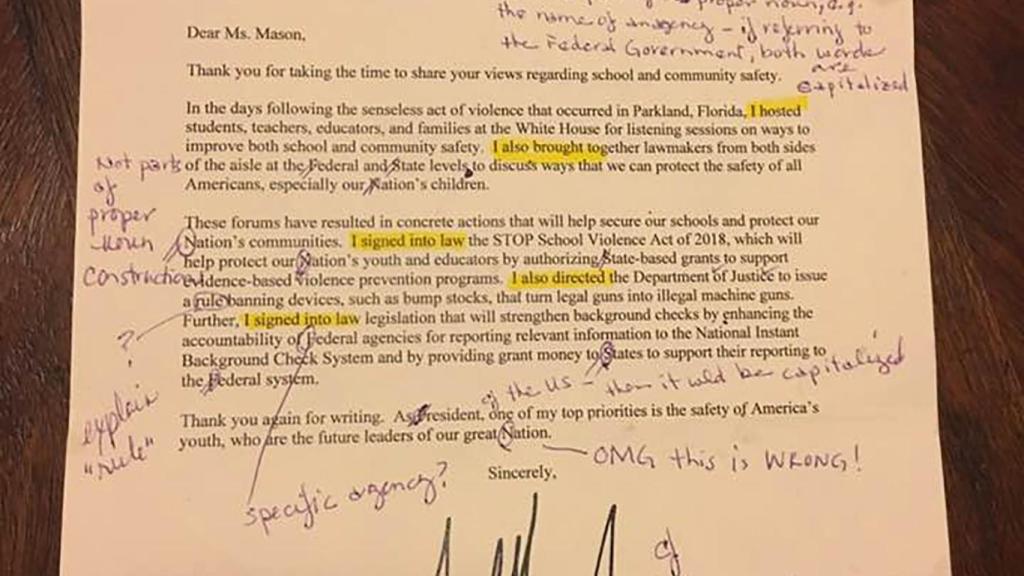 proper noun, e.g.
the name of an agency - if referring to
the Federal Government, both words
are
capitalized
Dear Ms. Mason,
Thank you for taking the time to share your views regarding school and community safety.
In the days following the senseless act of violence that occurred in Parkland, Florida, I hosted
students, teachers, educators, and families at the White House for listening sessions on ways to
improve both school and community safety. I also brought together lawmakers from both sides
of the aisle at the Federal and State levels to discuss ways that we can protect the safety of all
Americans, especially our Nation's children.
Not part
of
proper
noun
construction
These forums have resulted in concrete actions that will help secure our schools and protect our
Nation's communities. I signed into law the STOP School Violence Act of 2018, which will
help protect our Nation's youth and educators by authorizing State-based grants to support
evidence-based violence prevention programs. I also directed the Department of Justice to issue
a rule banning devices, such as bump stocks, that turn legal guns into illegal machine guns.
Further, I signed into law legislation that will strengthen background checks by enhancing the
accountability of Federal agencies for reporting relevant information to the National Instant
Background Check System and by providing grant money to States to support their reporting to
the Federal system.
?
explain
"rule"
of the US - then it wld be capitalized
Thank you again for writing. As President, one of my top priorities is the safety of America's
youth, who are the future leaders of our great Nation.
OMG this is WRONG!
Sincerely,
specific agency?